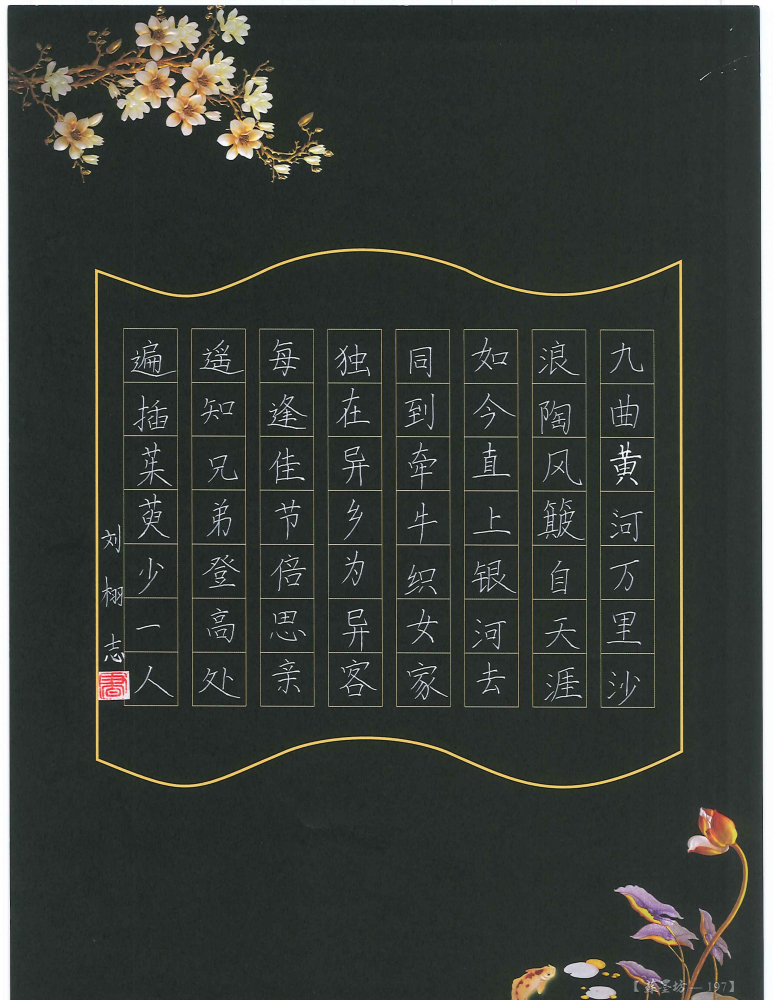 九曲黄河万里沙
浪陶风簸自天涯
如今直上银河去
同到牵牛织女家
独在异乡为异客
每逢佳节倍思亲
遥知兄弟登高处
遍插茱萸少一人
刘栩志
【翰墨坊—197】